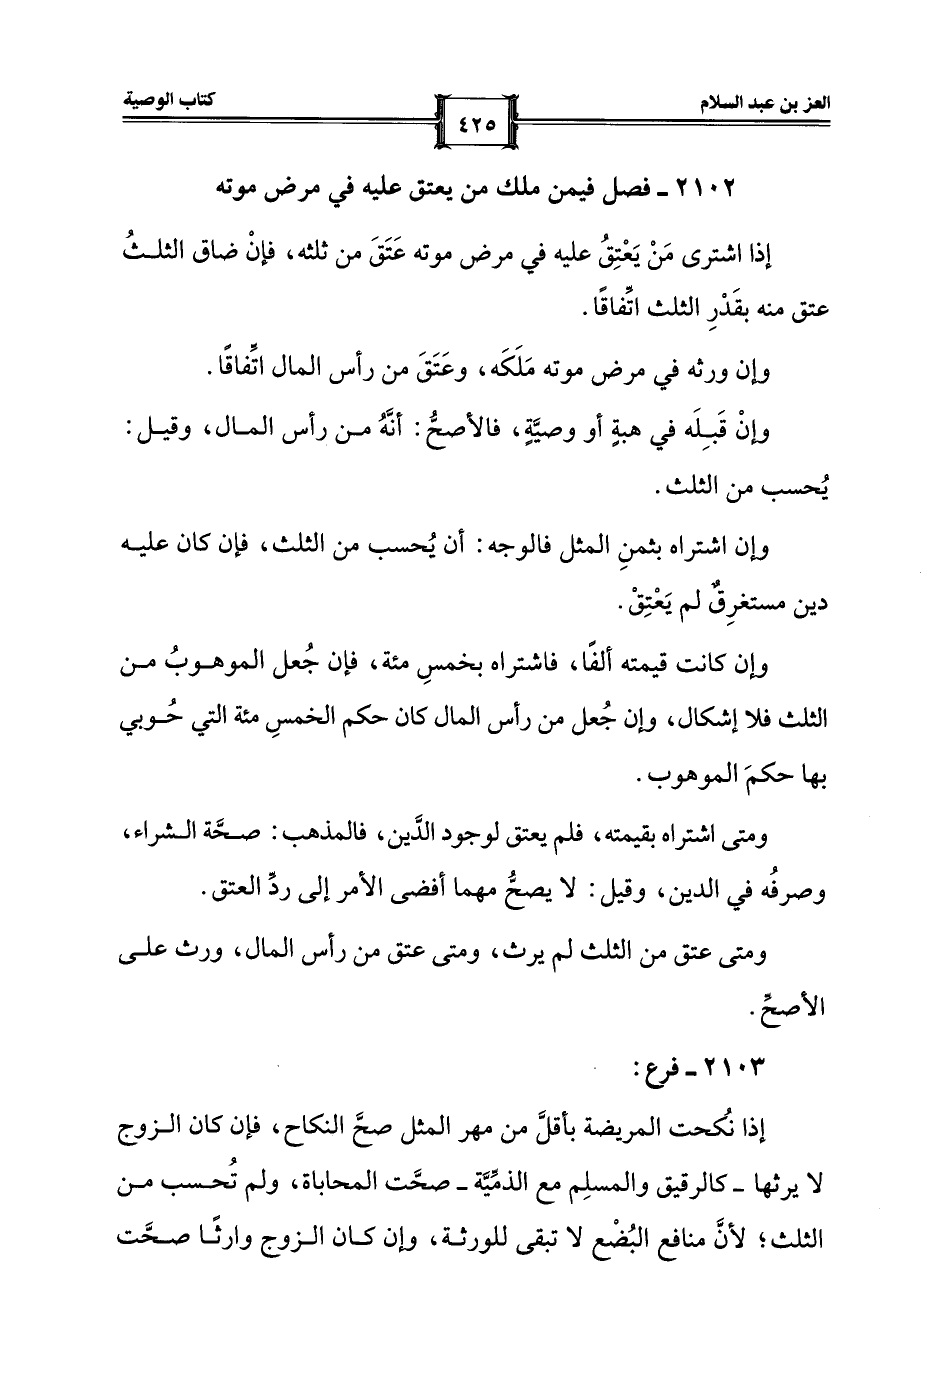 العز بن عبد السلام
كتاب الوصية
٤٢٥
٢١٠٢ ـ فصل فيمن ملك من يعتق عليه في مرض موته
إذا اشترى مَنْ يَعْتِقُ عليه في مرض موته عَتَقَ من ثلثه، فإنْ ضاق الثلثُ
عتق منه بقَدْرِ الثلث اتِّفاقًا.
وإن ورثه في مرض موته مَلَكَه، وعَتَقَ من رأس المال اتِّفاقًا.
وإنْ قَبِلَه في هبةٍ أو وصيَّةٍ، فالأصحُّ: أنَّهُ من رأس المال، وقيل:
يُحسب من الثلث.
وإن اشتراه بثمنِ المثل فالوجه: أن يُحسب من الثلث، فإن كان عليه
دين مستغرِقٌ لم يَعْتِقْ.
وإن كانت قيمته ألفًا، فاشتراه بخمسِ مئة، فإن جُعل الموهوبُ من
الثلث فلا إشكال، وإن جُعل من رأس المال كان حكم الخمسِ مئة التي حُوبي
بها حكمَ الموهوب.
ومتى اشتراه بقيمته، فلم يعتق لوجود الدَّين، فالمذهب: صحَّة الشراء،
وصرفُه في الدين، وقيل: لا يصحُّ مهما أفضى الأمر إلى ردِّ العتق.
ومتى عتق من الثلث لم يرث، ومتى عتق من رأس المال، ورث على
الأصحِّ.
٢١٠٣ ـ فرع:
إذا نُكحت المريضة بأقلَّ من مهر المثل صحَّ النكاح، فإن كان الزوج
لا يرثها ـ كالرقيق والمسلِم مع الذمِّيَّة ـ صحَّت المحاباة، ولم تُحسب من
الثلث؛ لأنَّ منافع البُضْع لا تبقى للورثة، وإن كان الزوج وارثًا صحَّت